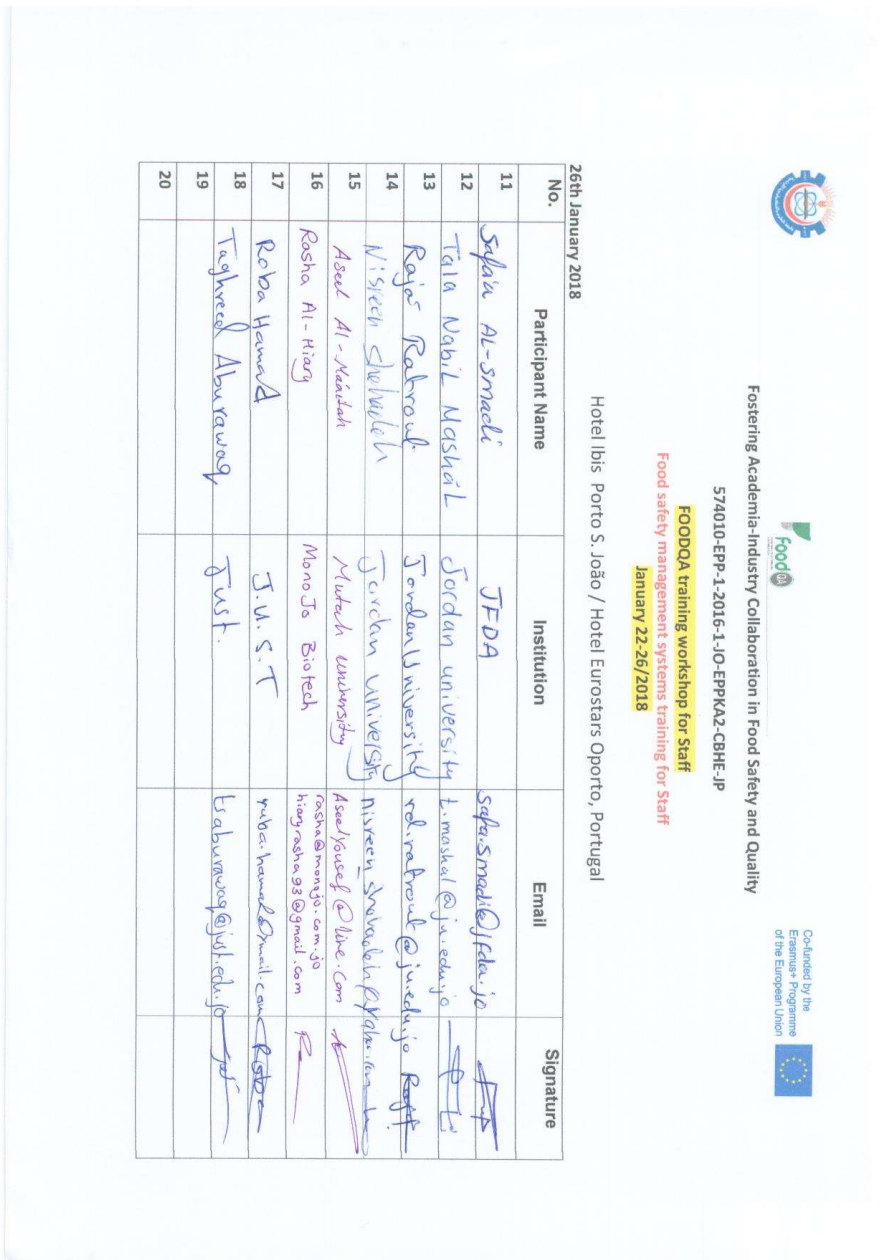 Food QA
Co-funded by the
Erasmus+ Programme
of the European Union
Fostering Academia-Industry Collaboration in Food Safety and Quality
574010-EPP-1-2016-1-JO-EPPKA2-CBHE-JP
FOODQA training workshop for Staff
Food safety management systems training for Staff
January 22-26/2018
Hotel Ibis Porto S. João / Hotel Eurostars Oporto, Portugal
26th January 2018
No. Participant Name Institution Email Signature
11 Safa'a AL-smadi JFDA safa.smadi@jfda.jo
12 Tala Nabil Mashal Jordan university t.mashal@ju.edu.jo
13 Raja' Ratrout Jordan University rd.ratrout@ju.edu.jo
14 Nisreen Shehadeh Jordan University nisreen
15 Aseel Al-Maaitah Mutah university Aseelyousef@live.com
16 Rasha Al-Hiary MonoJo Biotech rasha@monojo.com.jo
hiaryrasha93@gmail.com
17 Roba Hamad J.U.S.T Roba
18 Taghreed Aburawaq Just. tsaburawaq@just.edu.jo
19
20